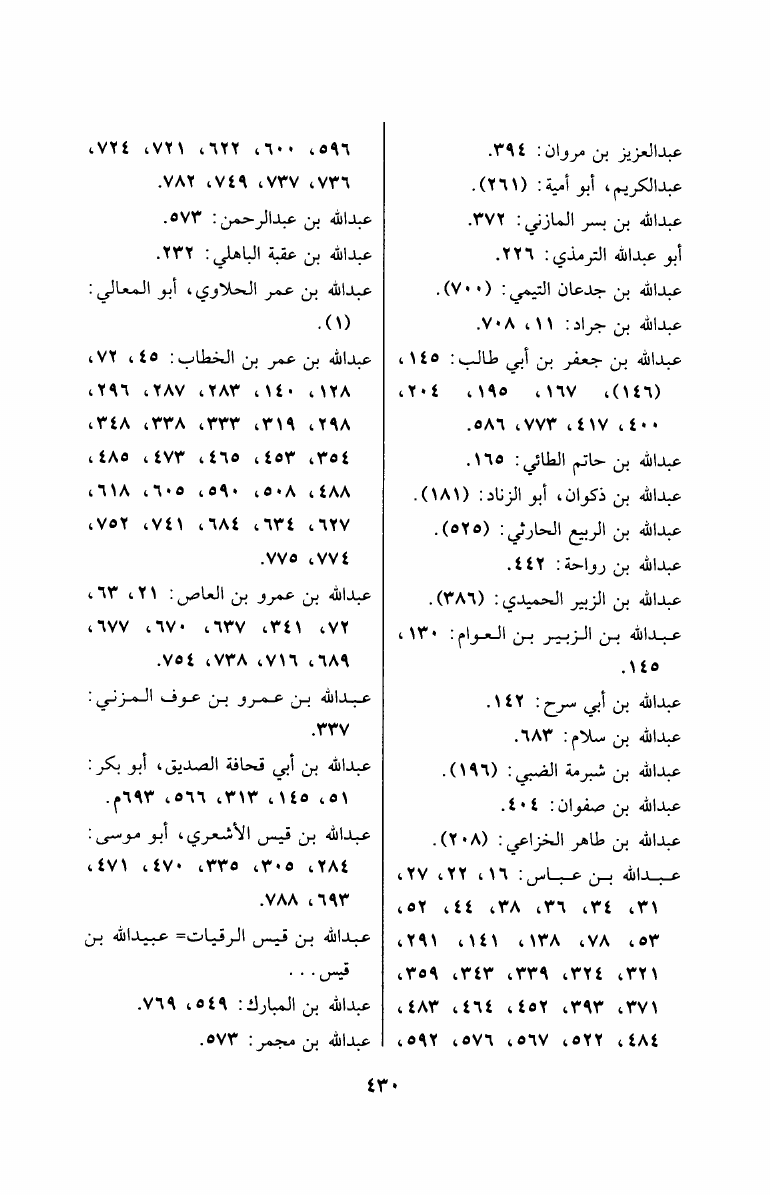 عبدالعزيز بن مروان: ٣٩٤.
عبدالكريم، أبو أمية: (٢٦١).
عبدالله بن بسر المازني: ٣٧٢.
أبو عبدالله الترمذي: ٢٢٦.
عبدالله بن جدعان التيمي: (٧٠٠).
عبدالله بن جراد: ١١، ٧٠٨.
عبدالله بن جعفر بن أبي طالب: ١٤٥،
(١٤٦)، ١٦٧، ١٩٥، ٢٠٤،
٤٠٠، ٤١٧، ٧٧٣، ٥٨٦.
عبدالله بن حاتم الطائي: ١٦٥.
عبدالله بن ذكوان، أبو الزناد: (١٨١).
عبدالله بن الربيع الحارثي: (٥٢٥).
عبدالله بن رواحة: ٤٤٢.
عبدالله بن الزبير الحميدي: (٣٨٦).
عبدالله بن الزبير بن العوام: ١٣٠،
١٤٥.
عبدالله بن أبي سرح: ١٤٢.
عبدالله بن سلام: ٦٨٣.
عبدالله بن شبرمة الضبي: (١٩٦).
عبدالله بن صفوان: ٤٠٤.
عبدالله بن طاهر الخزاعي: (٢٠٨).
عبدالله بن عباس: ١٦، ٢٢، ٢٧،
٣١، ٣٤، ٣٦، ٣٨، ٤٤، ٥٢،
٥٣، ٧٨، ١٣٨، ١٤١، ٢٩١،
٣٢١، ٣٢٤، ٣٣٩، ٣٤٣، ٣٥٩،
٣٧١، ٣٩٣، ٤٥٢، ٤٦٤، ٤٨٣،
٤٨٤، ٥٢٢، ٥٦٧، ٥٧٦، ٥٩٢،
٥٩٦، ٦٠٠، ٦٢٢، ٧٢١، ٧٢٤،
٧٣٦، ٧٣٧، ٧٤٩، ٧٨٢.
عبدالله بن عبدالرحمن: ٥٧٣.
عبدالله بن عقبة الباهلي: ٢٣٢.
عبدالله بن عمر الحلاوي، أبو المعالي:
(١).
عبدالله بن عمر بن الخطاب: ٤٥، ٧٢،
١٢٨، ١٤٠، ٢٨٣، ٢٨٧، ٢٩٦،
٢٩٨، ٣١٩، ٣٣٣، ٣٣٨، ٣٤٨،
٣٥٤، ٤٥٣، ٤٦٥، ٤٧٣، ٤٨٥،
٤٨٨، ٥٠٨، ٥٩٠، ٦٠٥، ٦١٨،
٦٢٧، ٦٣٤، ٦٨٤، ٧٤١، ٧٥٢،
٧٧٤، ٧٧٥.
عبدالله بن عمرو بن العاص: ٢١، ٦٣،
٧٢، ٣٤١، ٦٣٧، ٦٧٠، ٦٧٧،
٦٨٩، ٧١٦، ٧٣٨، ٧٥٤.
عبدالله بن عمرو بن عوف المزني:
٣٣٧.
عبدالله بن أبي قحافة الصديق، أبو بكر:
٥١، ١٤٥، ٣١٣، ٥٦٦، ٦٩٣م.
عبدالله بن قيس الأشعري، أبو موسى:
٢٨٤، ٣٠٥، ٣٣٥، ٤٧٠، ٤٧١،
٦٩٣، ٧٨٨.
عبدالله بن قيس الرقيات= عبيدالله بن
قيس...
عبدالله بن المبارك: ٥٤٩، ٧٦٩.
عبدالله بن مجمر: ٥٧٣.
٤٣٠